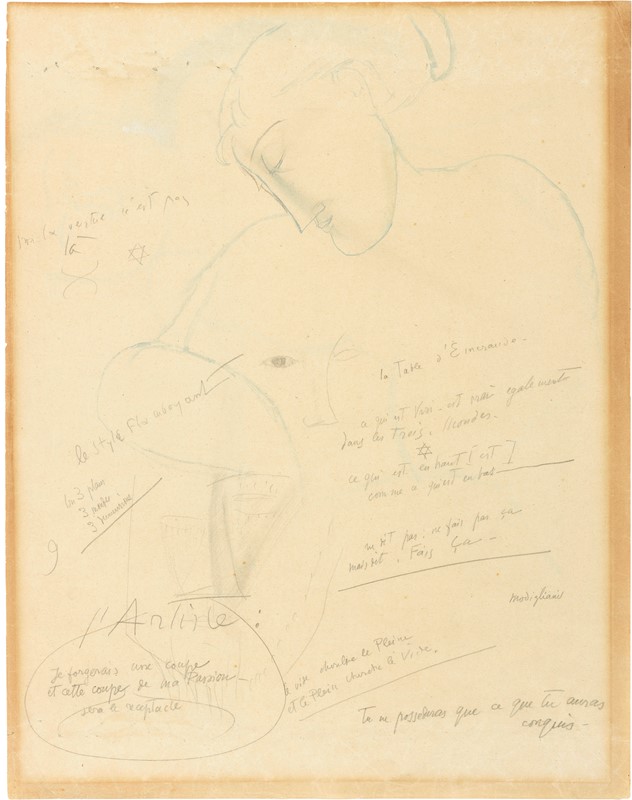 la
n'est pas
là
la Table d'Emeraude -
le Style Flamboyant
ce qui est Vrai est vrai egalement
dans les Trois Mondes.
ce qui est en haut [est]
comme ce qui est en bas
3 plans
3
3
9
ne dit pas ne fais pas ça
mais dit. Fais Ça -
modigliani
l'Artiste :
Je forgerais une coupe
et cette coupe de ma Passion -
sera le receptacle
le Plein
et le Plein cherche le Vide.
Tu ne possederas que ce que tu auras
conquis -